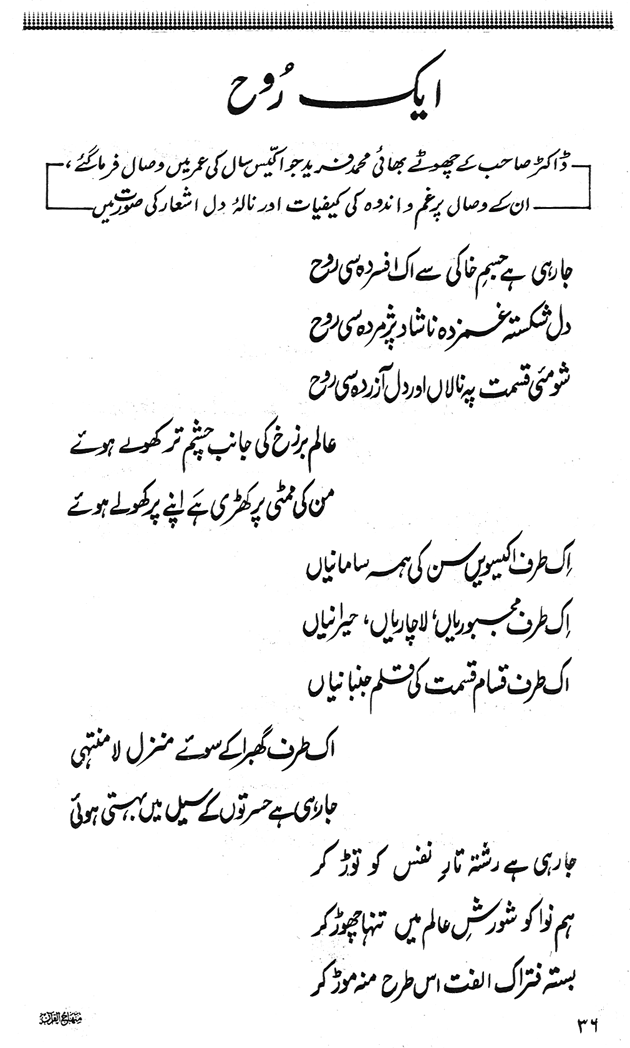 ایک رُوح
ڈاکٹر صاحب کے چھوٹے بھائی محمد فرید جو اکیس سال کی عمر میں وصال فرما گئے،
ان کے وصال پر غم و اندوہ کی کیفیات اور نالۂ دل اشعار کی صورت میں
جارہی ہے جسمِ خاکی سے اک افسردہ سی روح
دل شکستہ غمزدہ ناشاد پژمردہ سی روح
شومئی قسمت پہ نالاں اور دل آزردہ سی روح
عالم برزخ کی جانب چشم تر کھولے ہوئے
من کی ممٹی پر کھڑی ہے اپنے پر کھولے ہوئے
اِک طرف اکیسویں سن کی ہمہ سامانیاں
اِک طرف مجبوریاں، لاچاریاں، حیرانیاں
اک طرف قسام قسمت کی قلم جنبانیاں
اک طرف گھبرا کے سوئے منزل لا منتہی
جارہی ہے حسرتوں کے سیل میں بہتی ہوئی
جارہی ہے رشتہ تارِ نفس کو توڑ کر
ہم نوا کو شورشِ عالم میں تنہا چھوڑ کر
بستہ فتراک الفت اس طرح منہ موڑ کر
منہاج القرآن
۳۶